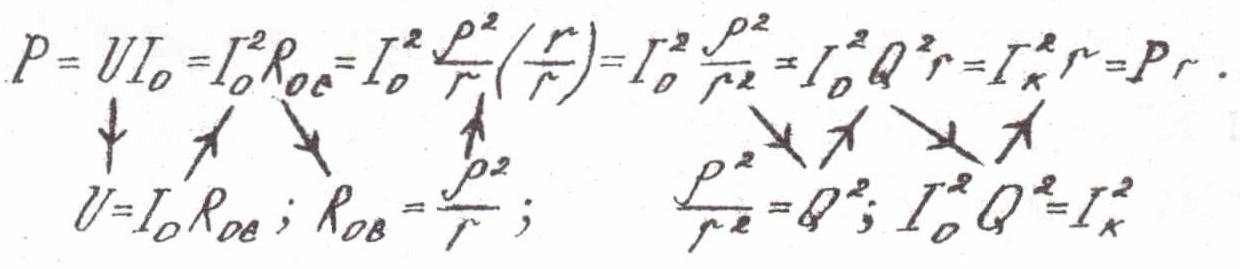 P = UI₀ = I₀²Rое = I₀² ρ²/r (r/r) = I₀² ρ²/r² = I₀²Q²r = Iк²r = Pr.
U = I₀Rое; Rов = ρ²/r; ρ²/r² = Q²; I₀²Q² = Iк²